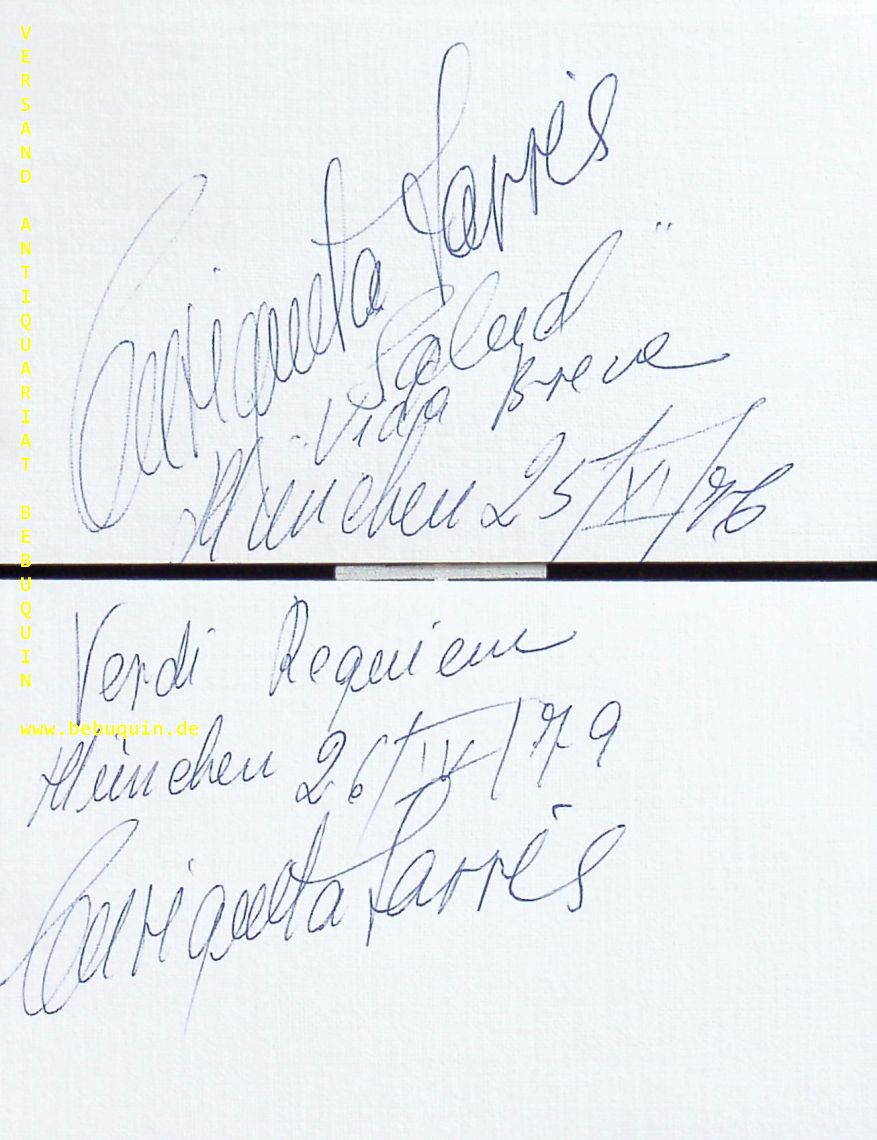 VERSAND ANTIQUARIAT BEBUQUIN
www.bebuquin.de
Enriqueta Tarrés
Salud"
"Vida Breve
München 25/XI/76
Verdi Requiem
München 26/IV/79
Enriqueta Tarrés